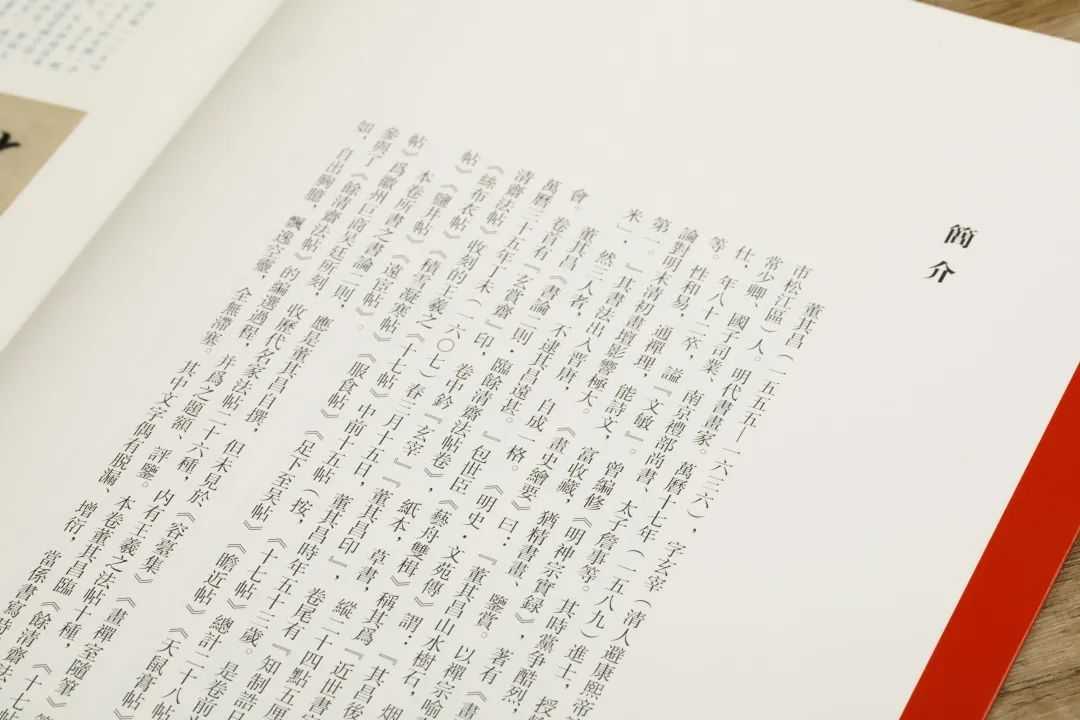 簡介
董其昌（一五五五—一六三六），字玄宰（清人避康熙帝
市松江區）人。明代書畫家。萬曆十七年（一五八九）進士，授
常少卿、國子司業、南京禮部尚書、太子詹事等。其時黨爭酷烈，
仕，年八十二卒，謚『文敏』。曾編修《明神宗實録》，著有《畫
等。性和易，通禪理，能詩文，富收藏，猶精書畫、鑒賞。以禪宗喻
論對明末清初畫壇影響極大。《畫史繪要》曰：『董其昌山水樹石，烟
第一。』其書法出入晋唐，自成一格。《明史·文苑傳》稱其爲『近世書
米』，然三人者，不逮其昌遠甚。』包世臣《藝舟雙楫》謂：『其昌後
會。
董其昌《書論二則·臨餘清齋法帖卷》，紙本，草書，縱二十四點五厘
卷首有『玄賞齋』印，卷中鈐『玄宰』『董其昌印』，卷尾有『知制誥日
萬曆三十五年丁未（一六〇七）春三月十五日，董其昌時年五十三歲。是卷前
清齋法帖》收刻的王羲之《十七帖》中前十五帖（按，《十七帖》總計二十八帖
《絲布衣帖》《積雪凝寒帖》《服食帖》《足下至吴帖》《瞻近帖》《天鼠膏帖》
帖》《鹽井帖》《遠宦帖》。
本卷所書之書論二則，應是董其昌自撰，但未見於《容臺集》《畫禪室隨筆》
帖》爲徽州巨商吴廷所刻，收歷代名家法帖二十六種，内有王羲之法帖十種，
參與了《餘清齋法帖》的編選過程，并爲之題額、評鑒。本卷董其昌臨《餘清齋法
如，自出胸臆，飄逸空靈，全無滯塞。其中文字偶有脱漏、增衍，當係書寫時